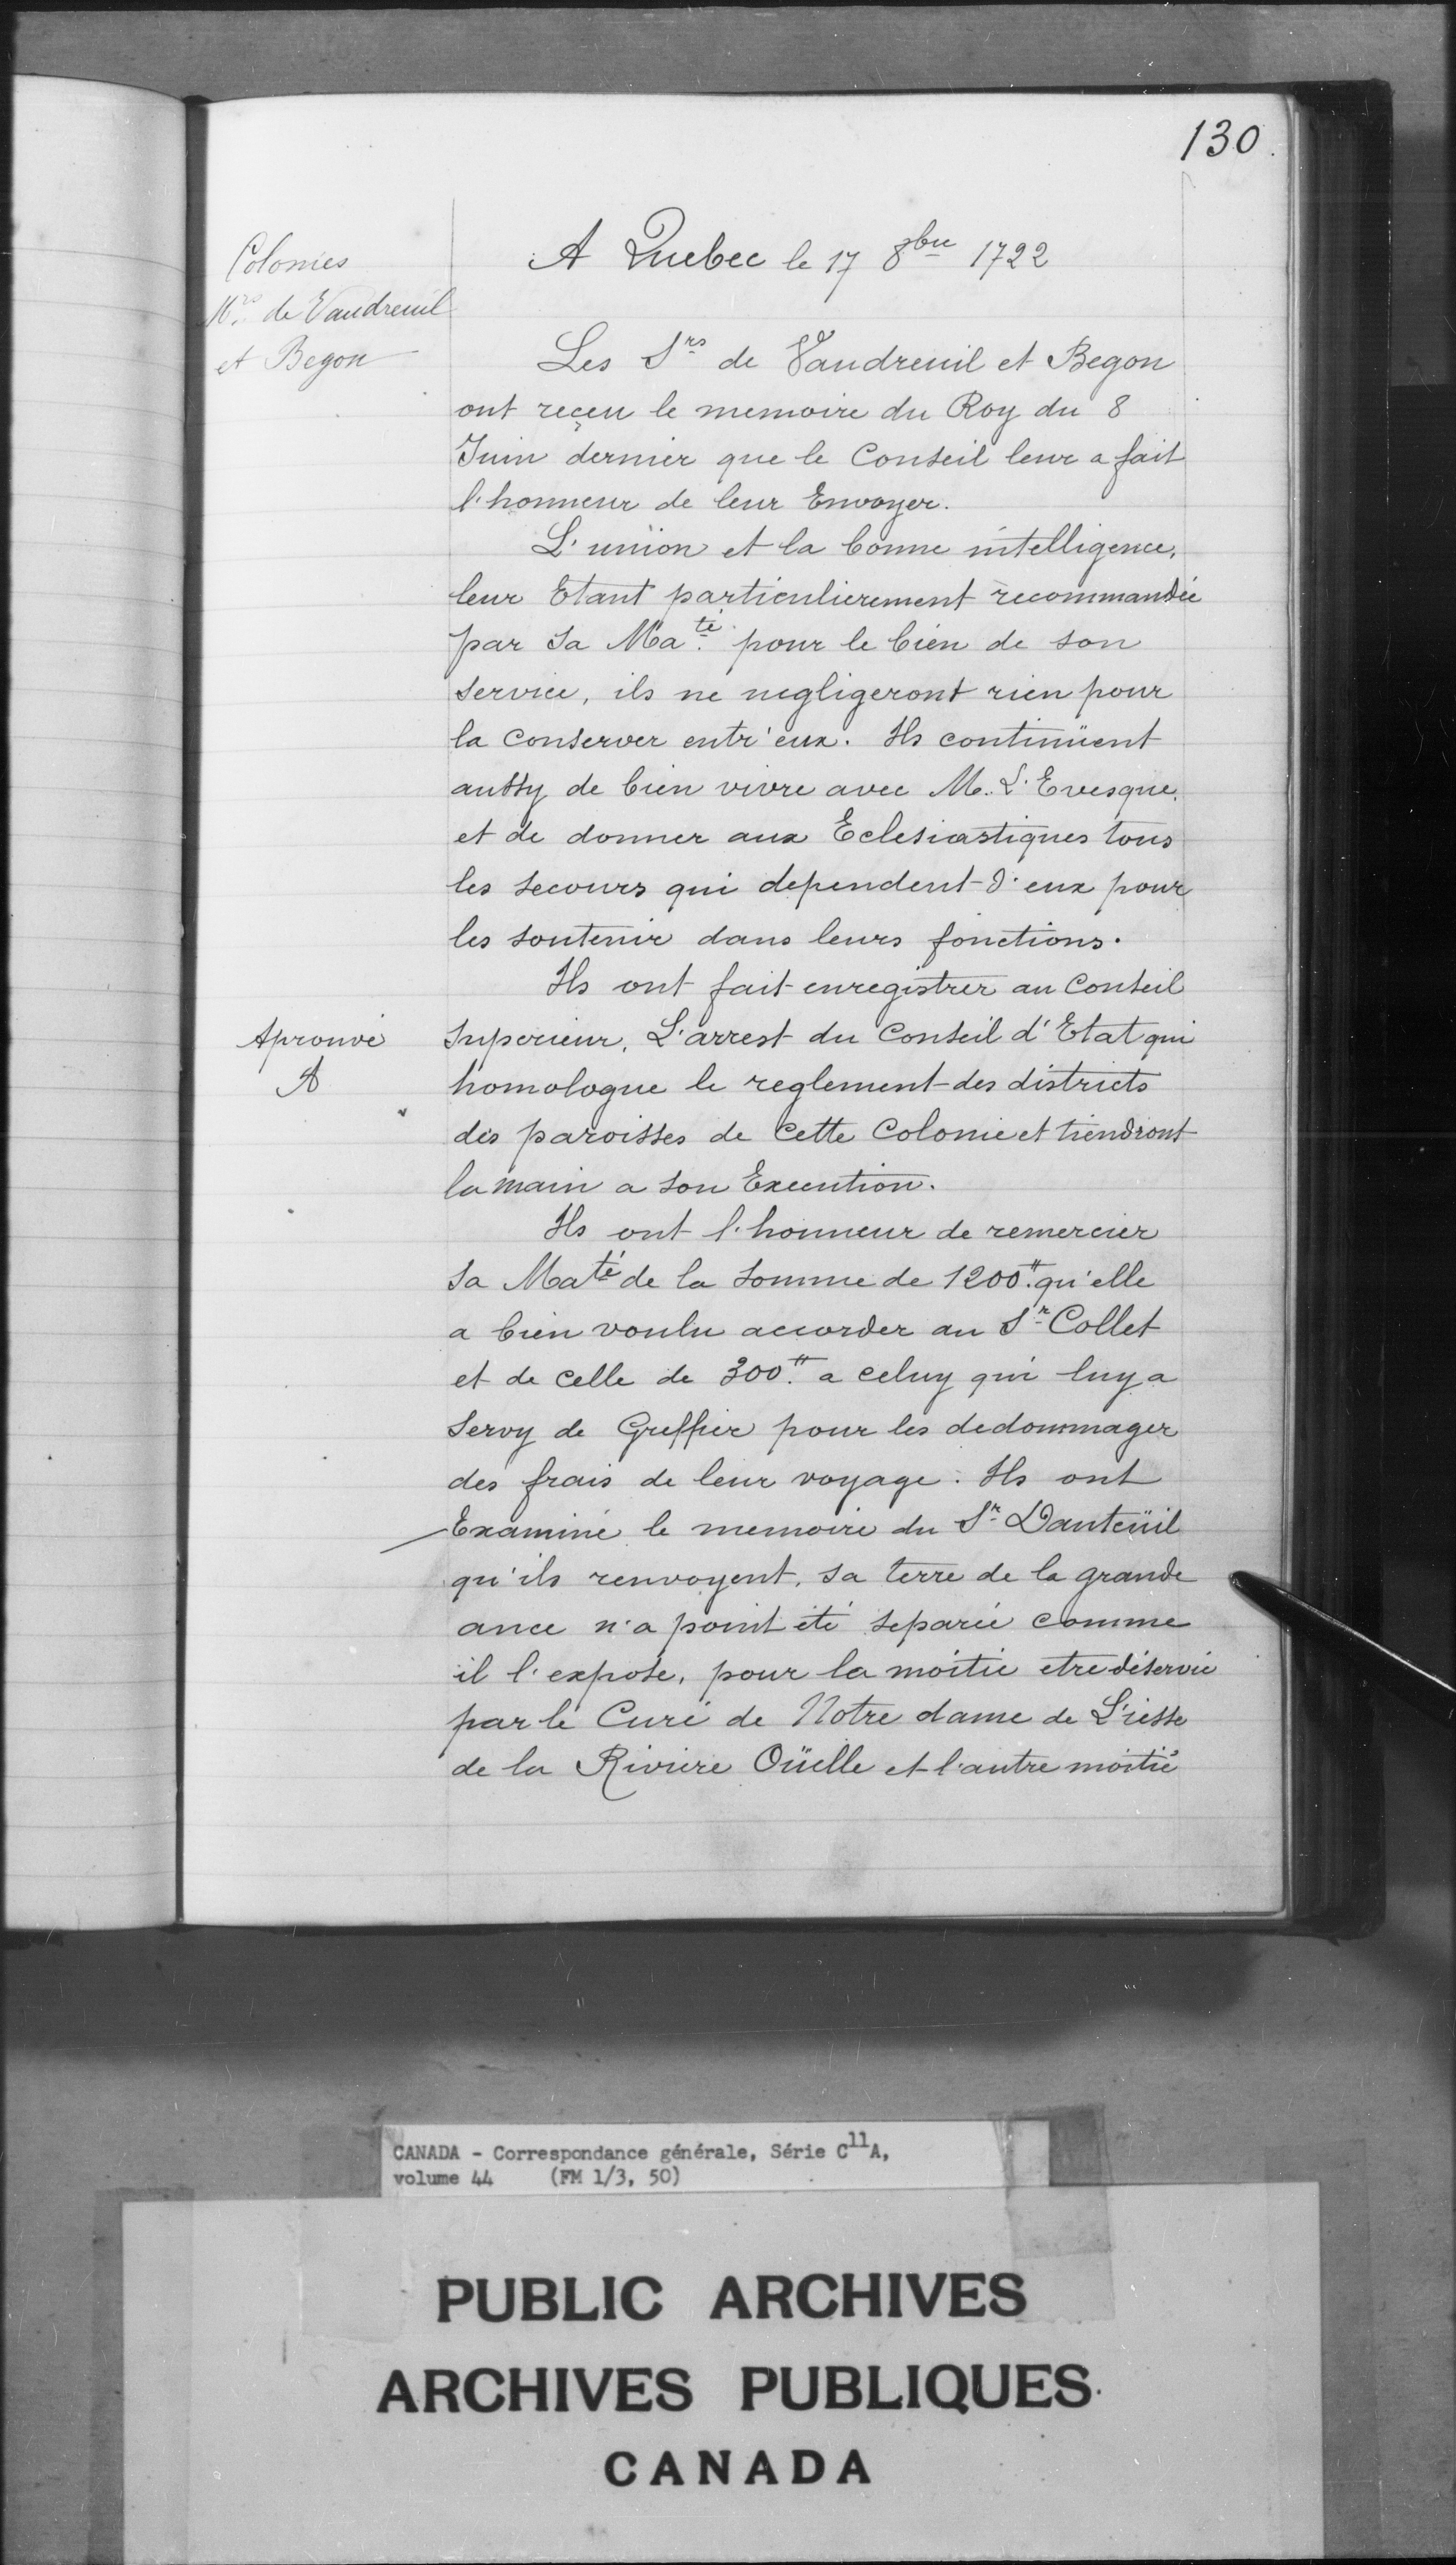 130.
Colonies
Mrs. de Vaudreuil
et Begon
A Quebec le 17 8bre 1722
Les Srs de Vaudreuil et Begon
ont reçeu le memoire du Roy du 8
Juin dernier que le Conseil leur a fait
l'honneur de leur Envoyer.
L'uniion et la bonne intelligence,
leur Etant particulierement recommandée
par Sa Maté. pour le bien de son
service, ils ne negligeront rien pour
la conserver entr'eux. Ils continüent
aussy de bien vivre avec M. L'Evesque,
et de donner aux Eclesiastiques tous
les secours qui dependent d'eux pour
les soutenir dans leurs fonctions.
Ils ont fait enregistrer au Conseil
Aprouvé
A
Superieur, L'arrest du Conseil d'Etat qui
homologue le reglement des districts
des paroisses de Cette Colonie et tiendront
la main a son Execution.
Ils ont l'honneur de remercier
Sa Maté de la somme de 1200.# qu'elle
a bien voulu accorder au Sr Collet
et de celle de 300.# a celuy qui luy a
servy de Greffier pour les dedommager
des frais de leur voyage. Ils ont
Examiné le memoire du Sr Dauteüil
qu'ils renvoyent, sa terre de la grande
ance n'a point été separée comme
il l'expose, pour la moitie etre déservie
par le Curé de Notre dame de L'iesse
de la Riviere Oüelle et l'autre moitié
CANADA - Correspondance générale, Série C11A,
volume 44 (FM 1/3, 50)
PUBLIC ARCHIVES
ARCHIVES PUBLIQUES
CANADA